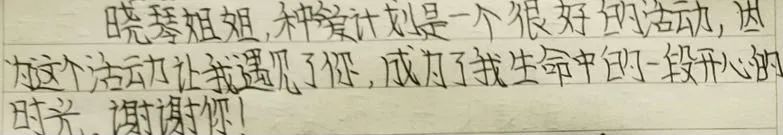 晓琴姐姐,种爱计划是一个很好的活动,因
为这个活动让我遇见了你,成为了我生命中的一段开心的
时光,谢谢你!